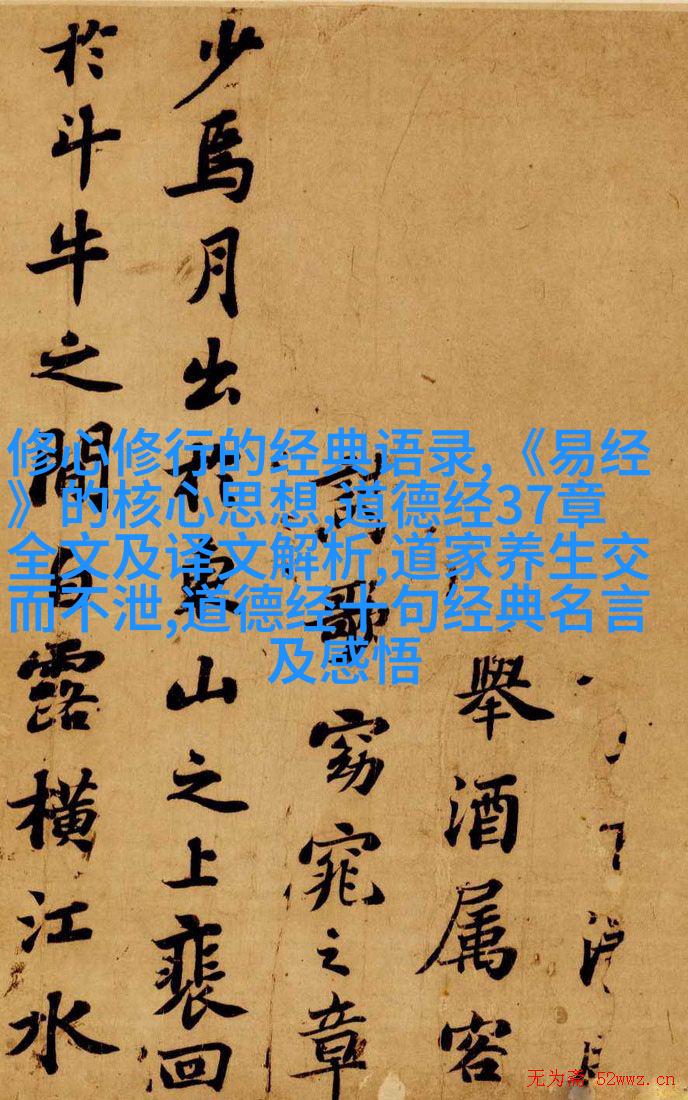 舉酒属客
歌窈窕之章
少焉月出於東山之上裴回
於斗牛之間白露橫江水
修心修行的经典语录,《易经
》的核心思想,道德经37章
全文及译文解析,道家养生交
而不泄,道德经十句经典名言
及感悟
无为斋 52wwz.cn